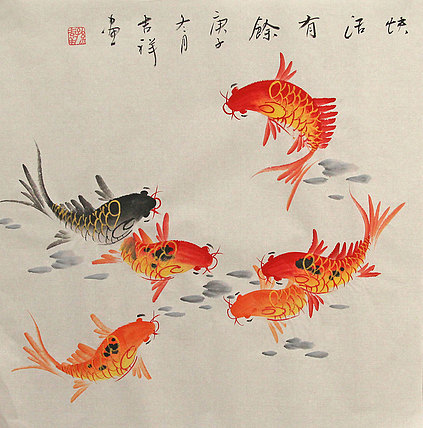 快活有餘
庚子
月
吉祥
畫